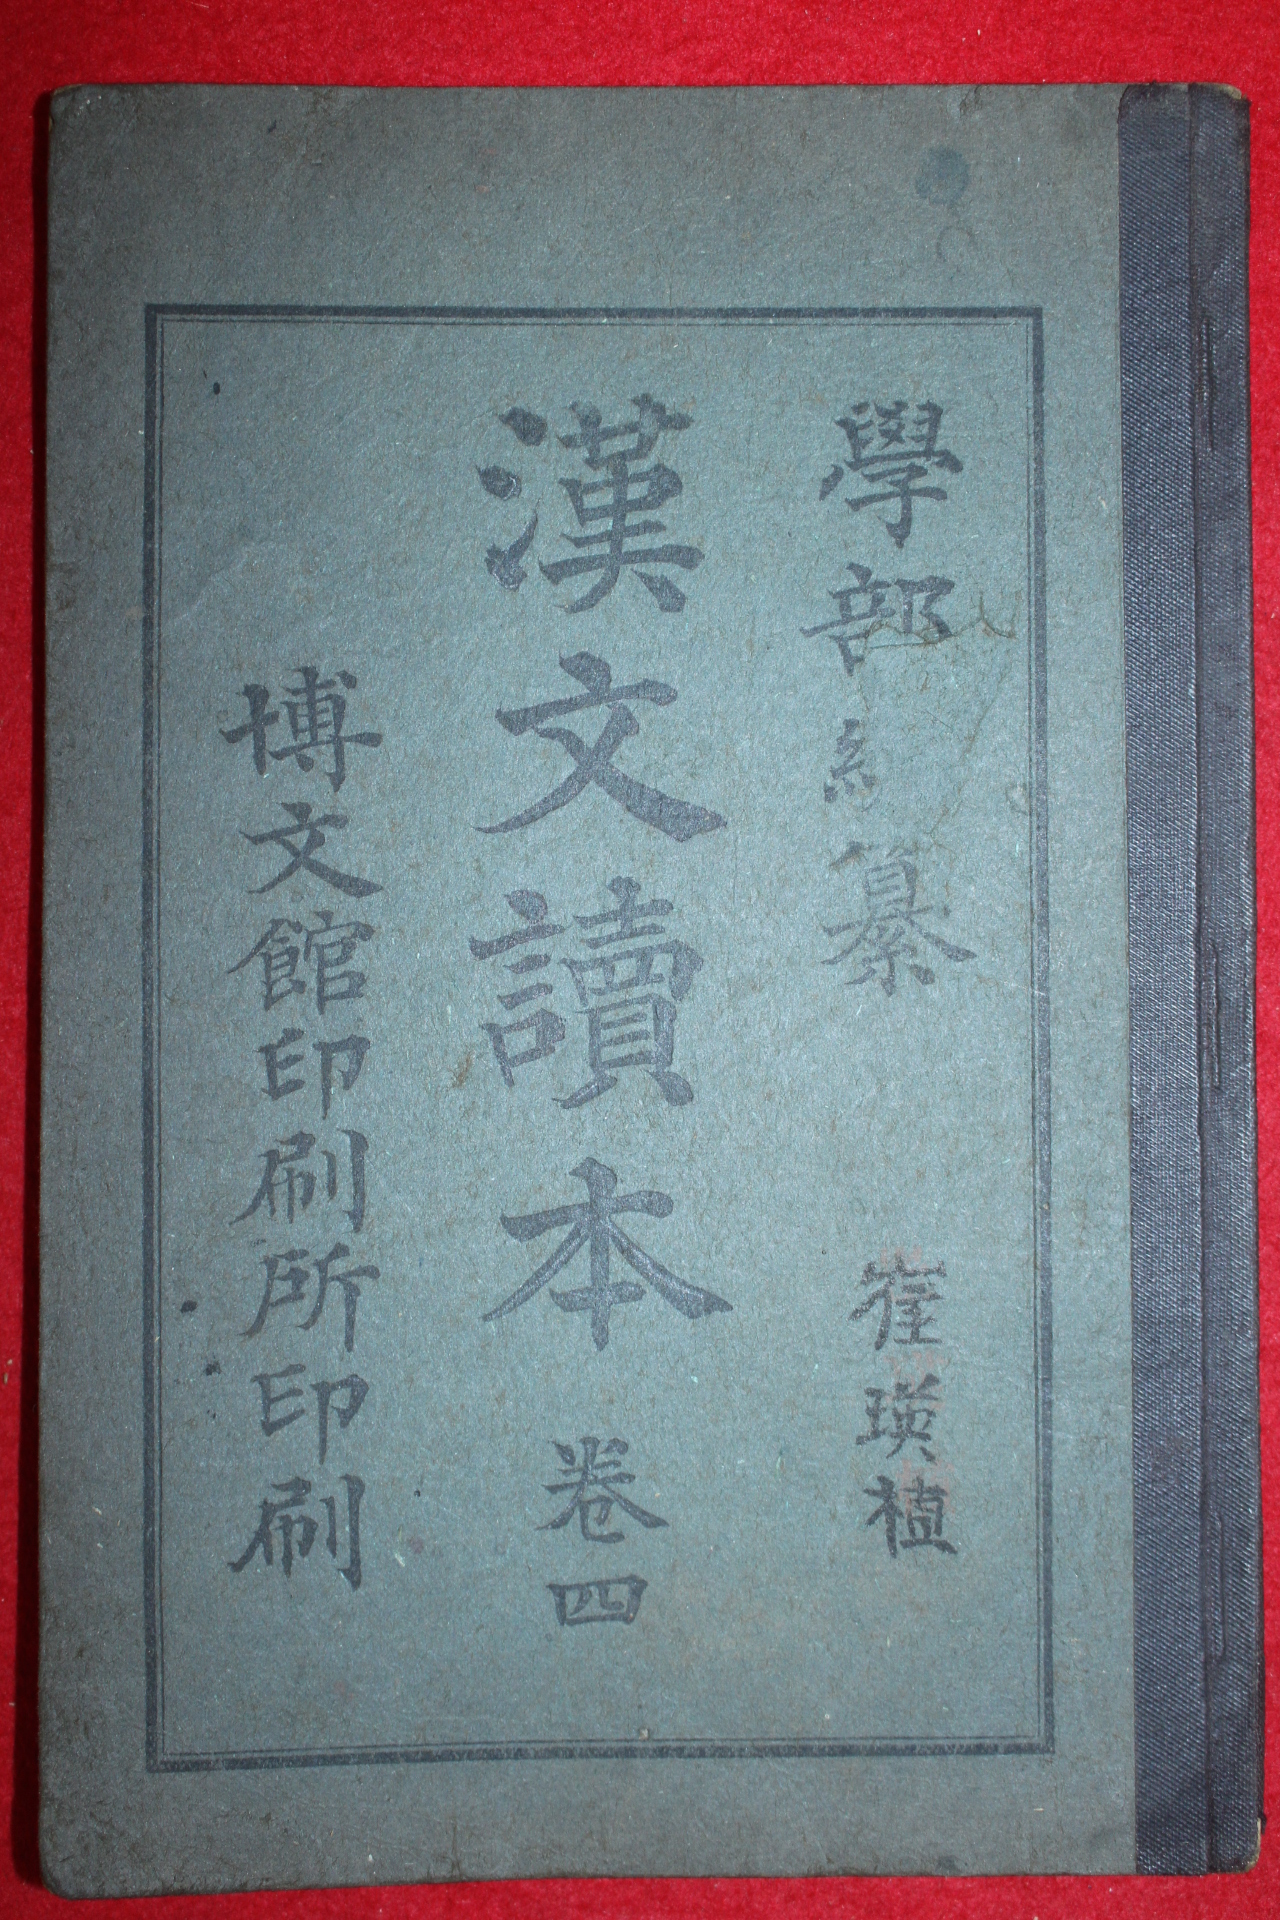 學部編纂
崔瑛植
漢文讀本 卷四
博文館印刷所印刷